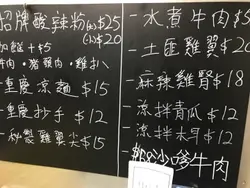 招牌酸辣粉(大)$25
(小)$20
加餸 +$5
牛肉·豬頸肉·雞扒
重慶涼麵 $15
重慶抄手 $12
秘製雞翼尖 $15
- 水煮牛肉
- 土匪雞翼 $20
- 麻辣雞腎 $18
- 涼拌青瓜 $12
- 涼拌木耳 $12
沙嗲牛肉